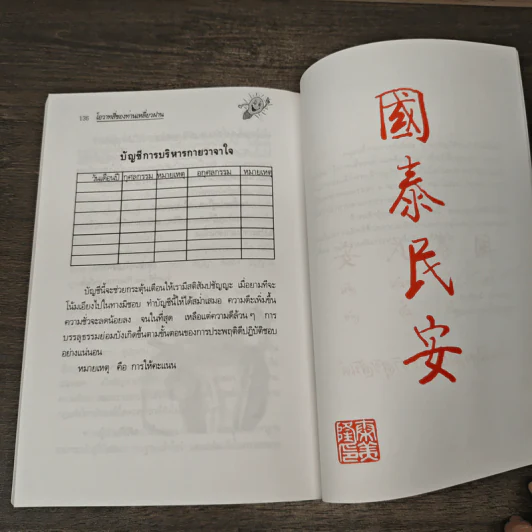 136 โอวาทสี่ของท่านเหลี่ยวฝาน
บัญชีการบริหารกายวาจาใจ
วันเดือนปี กุศลกรรม หมายเหตุ อกุศลกรรม หมายเหตุ
บัญชีนี้จะช่วยกระตุ้นเตือนให้เรามีสติสัมปชัญญะ เมื่อยามที่จะ
โน้มเอียงไปในทางมิชอบ ทำบัญชีนี้ให้ได้สม่ำเสมอ ความดีจะเพิ่มขึ้น
ความชั่วจะลดน้อยลง จนในที่สุด เหลือแต่ความดีล้วน ๆ การ
บรรลุธรรมย่อมบังเกิดขึ้นตามขั้นตอนของการประพฤติดีปฏิบัติชอบ
อย่างแน่นอน
หมายเหตุ คือ การให้คะแนน
國泰民安